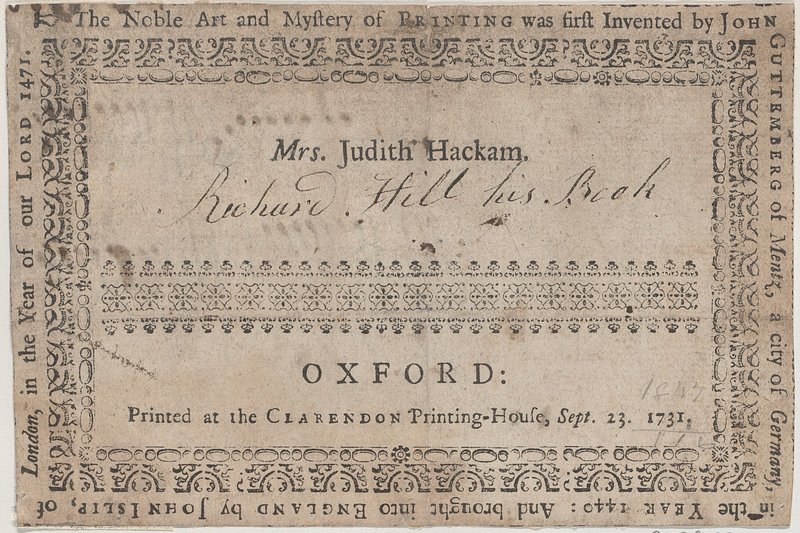 The Noble Art and Myſtery of PRINTING was firſt Invented by JOHN
GUTTEMBERG of Mentz, a city of Germany,
in the YEAR 1440: And brought into ENGLAND by JOHN ISLIP, of
London, in the Year of our LORD 1471.
Mrs. Judith Hackam.
Richard Hill his Book
OXFORD:
Printed at the CLARENDON Printing-Houſe, Sept. 23. 1731.